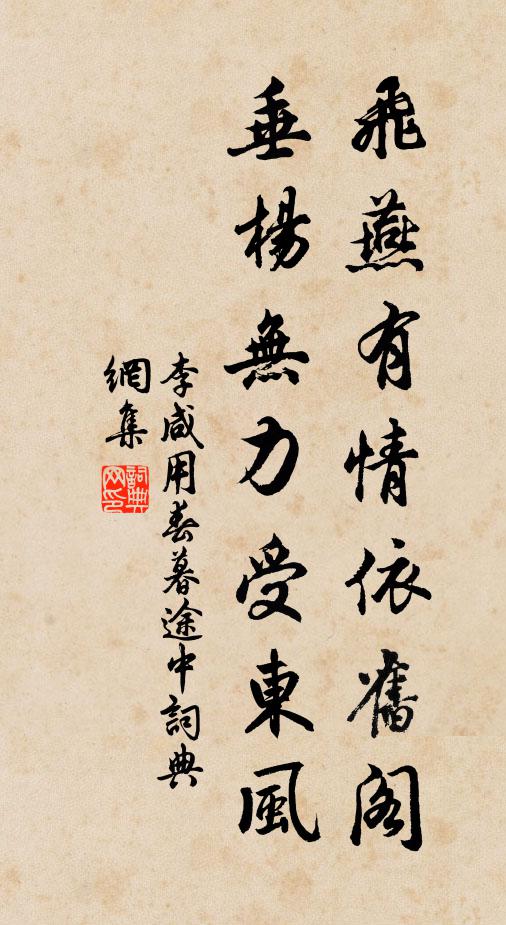 飛燕有情依舊閣
垂楊無力受東風
李咸用春暮途中詞典
網集
詞典網印